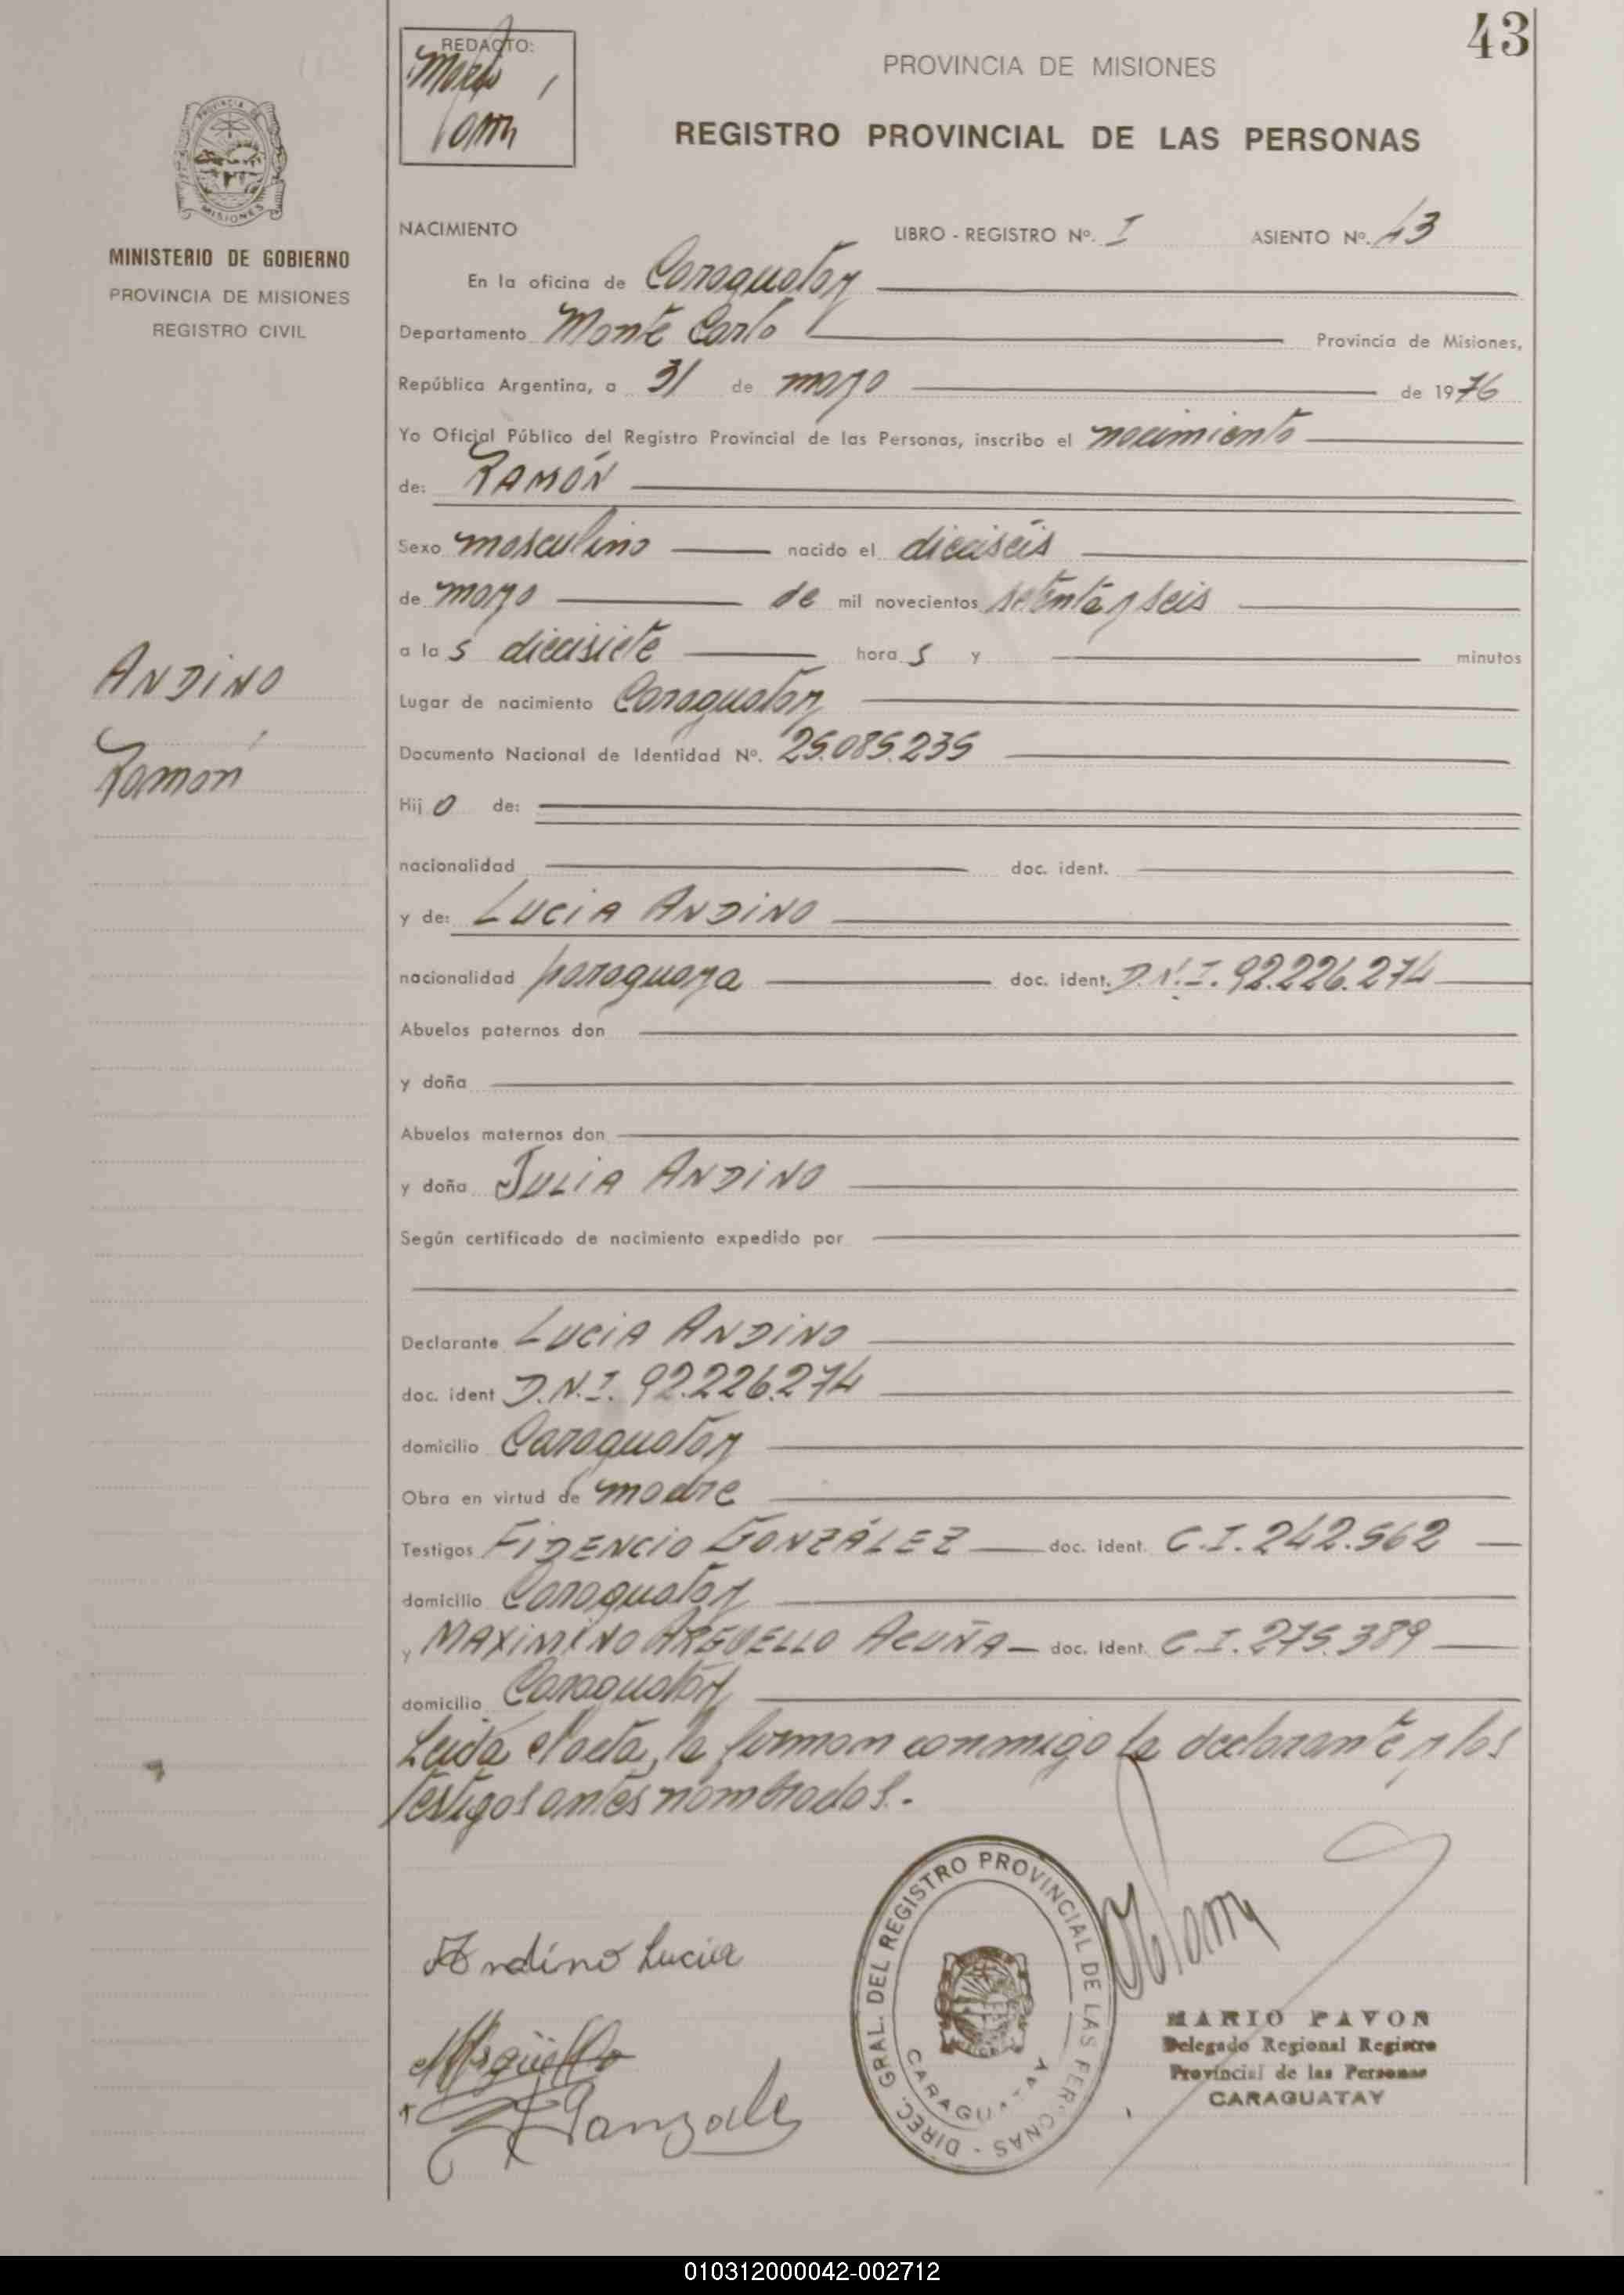 43
REDACTO:
Mario
Pavon
PROVINCIA DE MISIONES
REGISTRO PROVINCIAL DE LAS PERSONAS
PROVINCIA DE
MISIONES
MINISTERIO DE GOBIERNO
PROVINCIA DE MISIONES
REGISTRO CIVIL
NACIMIENTO LIBRO - REGISTRO Nº. I ASIENTO Nº. 43
En la oficina de Caraguatay
Departamento Monte Carlo Provincia de Misiones,
República Argentina, a 31 de mayo de 1976
Yo Oficial Público del Registro Provincial de las Personas, inscribo el nacimiento
de: RAMÓN
Sexo masculino nacido el dieciséis
de mayo de mil novecientos setenta y seis
a las diecisiete horas y minutos
ANDINO
Ramón
Lugar de nacimiento Caraguatay
Documento Nacional de Identidad Nº. 25.085.235
Hijo de:
nacionalidad doc. ident.
y de: LUCIA ANDINO
nacionalidad paraguaya doc. ident. D.N.I. 92.226.274
Abuelos paternos don
y doña
Abuelos maternos don
y doña JULIA ANDINO
Según certificado de nacimiento expedido por
Declarante LUCIA ANDINO
doc. ident D.N.I. 92.226.274
domicilio Caraguatay
Obra en virtud de madre
Testigos FIDENCIO GONZÁLEZ doc. ident. C.I. 242.562
domicilio Caraguatay
y MAXIMINO ARGUELLO ACUÑA doc. Ident. C.I. 275.389
domicilio Caraguatay
Leida el acta, la firman conmigo la declarante y los
testigos antes nombrados.
Andino Lucia
Argüello
Gonzale
DIREC. GRAL. DEL REGISTRO PROVINCIAL DE LAS PERSONAS
CARAGUATAY
MARIO PAVON
Delegado Regional Registro
Provincial de las Personas
CARAGUATAY
010312000042-002712